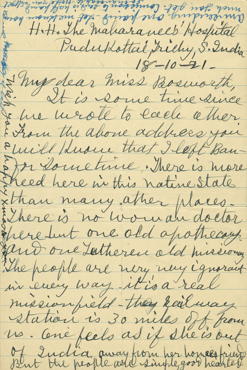 H. H. The Maharanee's Hospital
Pudukottai, Trichy, S. India
18-10-21-
My dear Miss Bosworth,
It is some time since
we wrote to each other.
From the above address you
will know that I left Ban-
for Sometime. There is more
need here in this native State
than many other places.
There is no woman doctor
here but one old apothecary
and one Lutheren old missionary
The people are very, very ignorant
in every way. it is a real
mission field - The railway
station is 30 miles off from
us. One feels as if she is out
of India, away from her homes friends
But the people are simple, good hearted
Wish you a happy Xmas